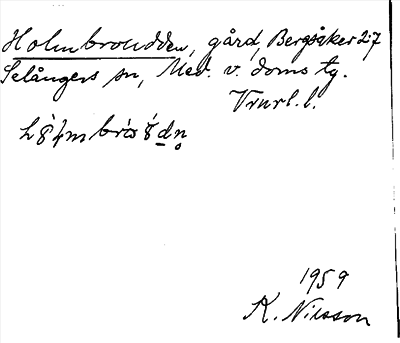 Holmbroudden, gård, Bergsåker 2:7
Selångers sn, Med. v. doms tg.
Vrurl. l.
1959
K. Nilsson